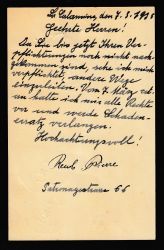 La Calamine, den 7.3.1935
Geehrte Herren!
Da Sie bis jetzt Ihren Ver-
pflichtungen noch nicht nach-
gekommen sind, sehe ich mich
verpflichtet, andere Wege
einzuleiten. Vom 7. März ab
an halte ich mir alle Rechte
vor und werde Schaden-
ersatz verlangen.
Hochachtungsvoll!
Pierre
66